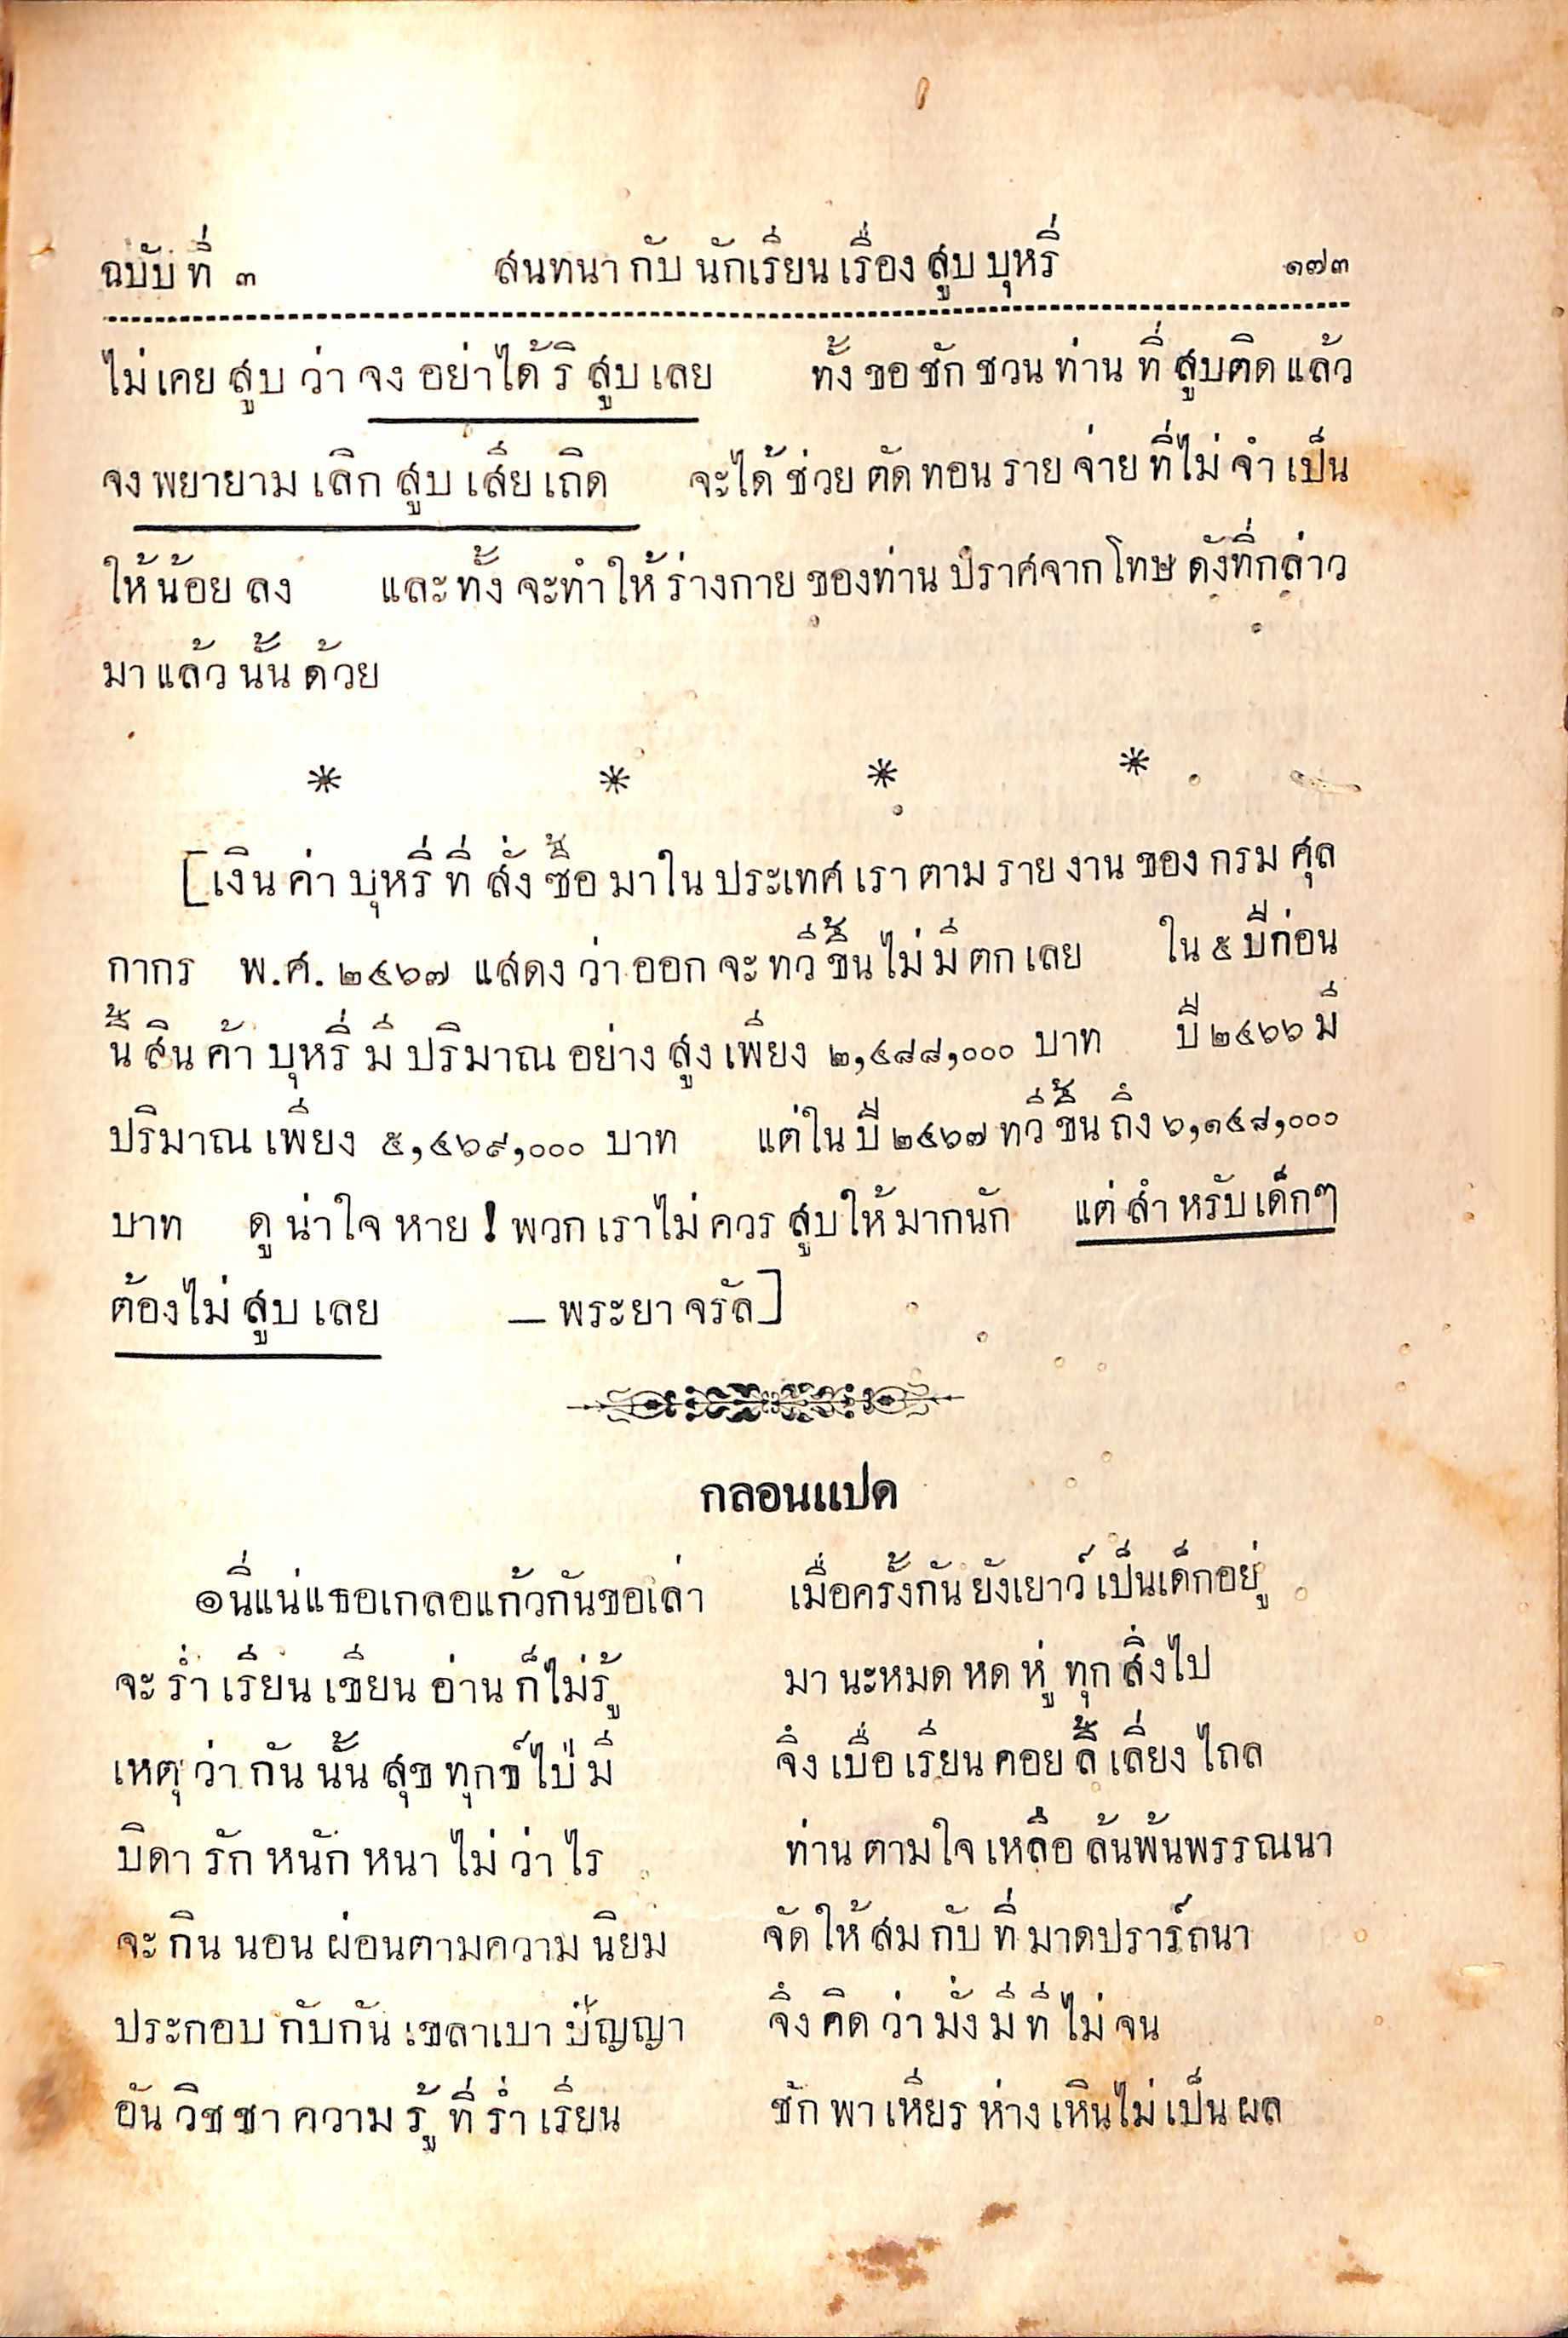 ฉบับ ที่ ๓ สนทนา กับ นักเรียน เรื่อง สูบ บุหรี่ ๑๗๓
ไม่ เคย สูบ ว่า จง อย่า ได้ ริ สูบ เลย ทั้ง ขอ ชัก ชวน ท่าน ที่ สูบติด แล้ว
จง พยายาม เลิก สูบ เสีย เถิด จะได้ ช่วย ตัด ทอน ราย จ่าย ที่ไม่ จำ เป็น
ให้ น้อย ลง และ ทั้ง จะทำ ให้ ร่างกาย ของท่าน ปราศจาก โทษ ดังที่กล่าว
มา แล้ว นั้น ด้วย
* * * *
[เงิน ค่า บุหรี่ ที่ สั่ง ซื้อ มา ใน ประเทศ เรา ตาม ราย งาน ของ กรม ศุล
กากร พ.ศ. ๒๔๖๗ แสดง ว่า ออก จะ ทวี ขึ้น ไม่ มี ตก เลย ใน ๕ ปีก่อน
นี้ สิน ค้า บุหรี่ มี ปริมาณ อย่าง สูง เพียง ๒,๔๘๘,๐๐๐ บาท ปี ๒๔๖๖ มี
ปริมาณ เพียง ๕,๔๖๙,๐๐๐ บาท แต่ ใน ปี ๒๔๖๗ ทวี ขึ้น ถึง ๖,๑๔๘,๐๐๐
บาท ดู น่า ใจ หาย ! พวก เรา ไม่ ควร สูบ ให้ มากนัก แต่ สำ หรับ เด็กๆ
ต้อง ไม่ สูบ เลย — พระยา จรัล]
กลอนแปด
๏ นี่แน่แธอเกลอแก้วกันขอเล่า เมื่อครั้งกัน ยังเยาว์ เป็นเด็กอยู่
จะ ร่ำ เรียน เขียน อ่าน ก็ไม่รู้ มา นะหมด หด หู่ ทุก สิ่ง ไป
เหตุ ว่า กัน นั้น สุข ทุกข์ ไป่ มี จึง เบื่อ เรียน คอย ลี้ เลี่ยง ไถล
บิดา รัก หนัก หนา ไม่ ว่า ไร ท่าน ตาม ใจ เหลือ ล้นพ้นพรรณนา
จะ กิน นอน ผ่อนตามความ นิยม จัด ให้ สม กับ ที่ มาดปรารถนา
ประกอบ กับกัน เขลาเบา ปัญญา จึง คิด ว่า มั่ง มี ที ไม่ จน
อัน วิชชา ความ รู้ ที่ ร่ำ เรียน ชัก พา เหียร ห่าง เหินไม่ เป็น ผล